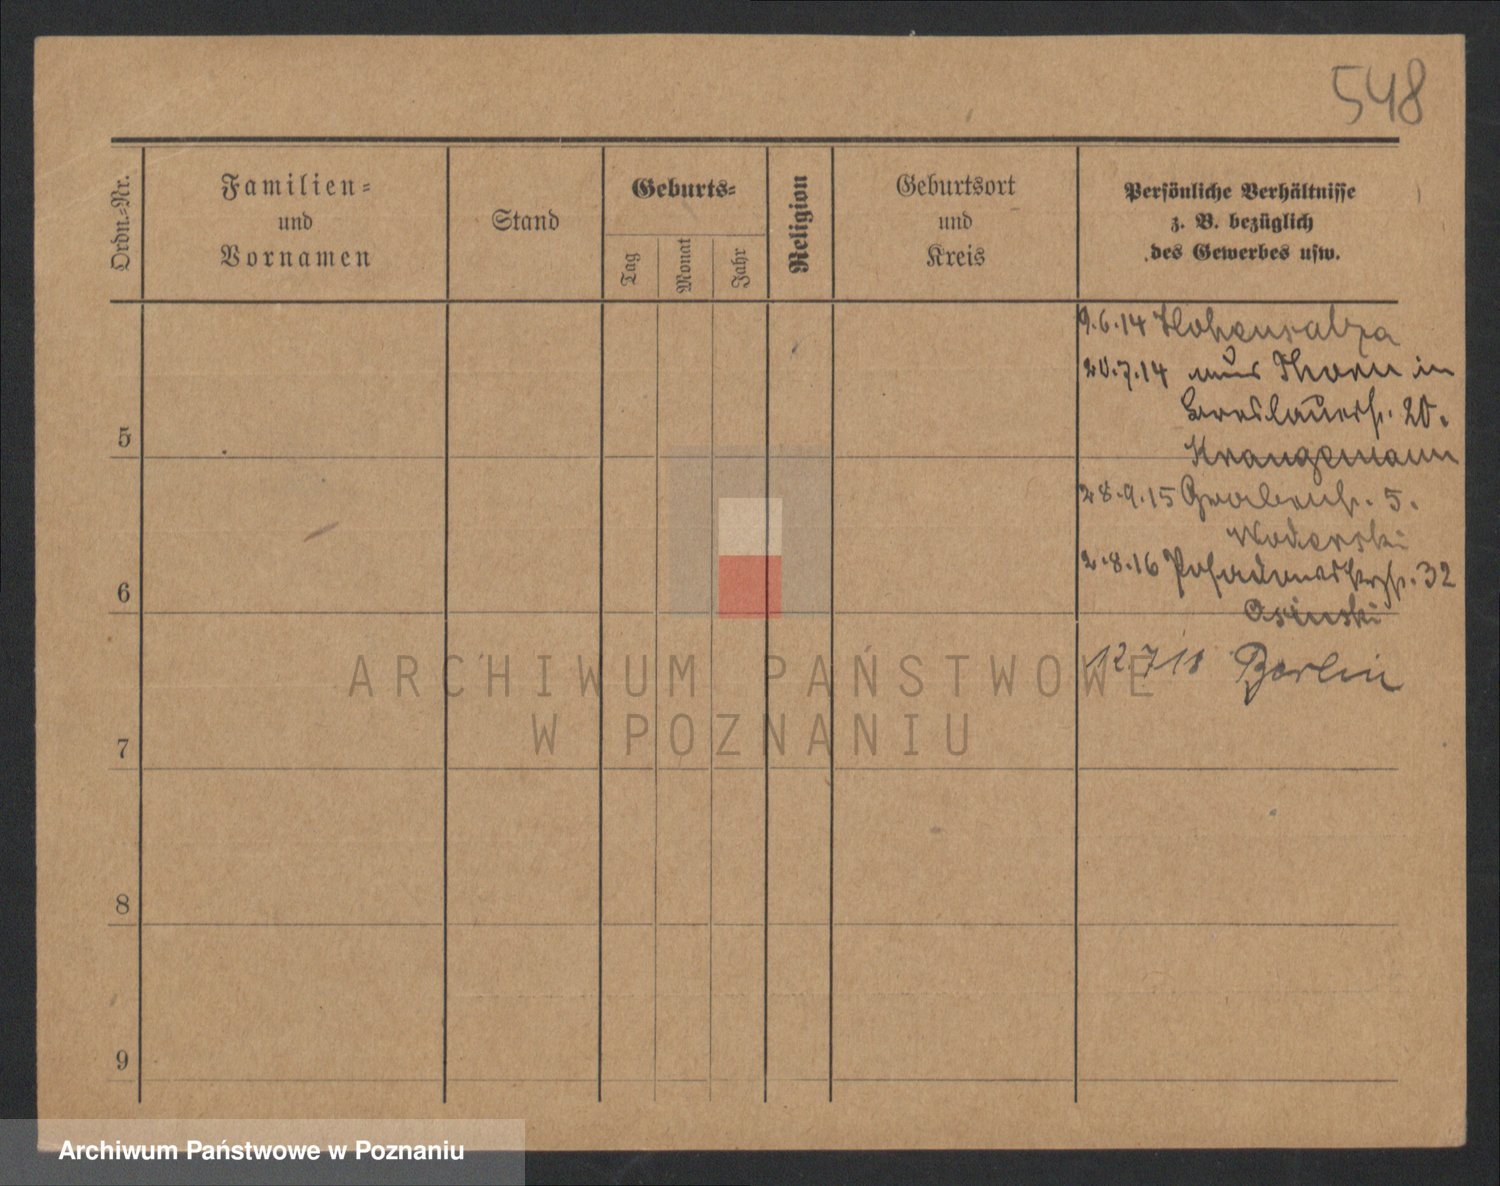 548
Ordn.-Nr.
Familien-
und
Vornamen
Stand
Geburts-
Tag
Monat
Jahr
Religion
Geburtsort
und
Kreis
Persönliche Verhältnisse
z. B. bezüglich
des Gewerbes usw.
9.6.14 Hohensalza
20.7.14 aus Thorn in
Breslauerstr. 20.
Krangemann
5
28.9.15 Grabenstr. 5.
Woderski
2.8.16 32
6
Osinski
12.7.18 Berlin
7
8
9
ARCHIWUM PAŃSTWOWE
W POZNANIU
Archiwum Państwowe w Poznaniu